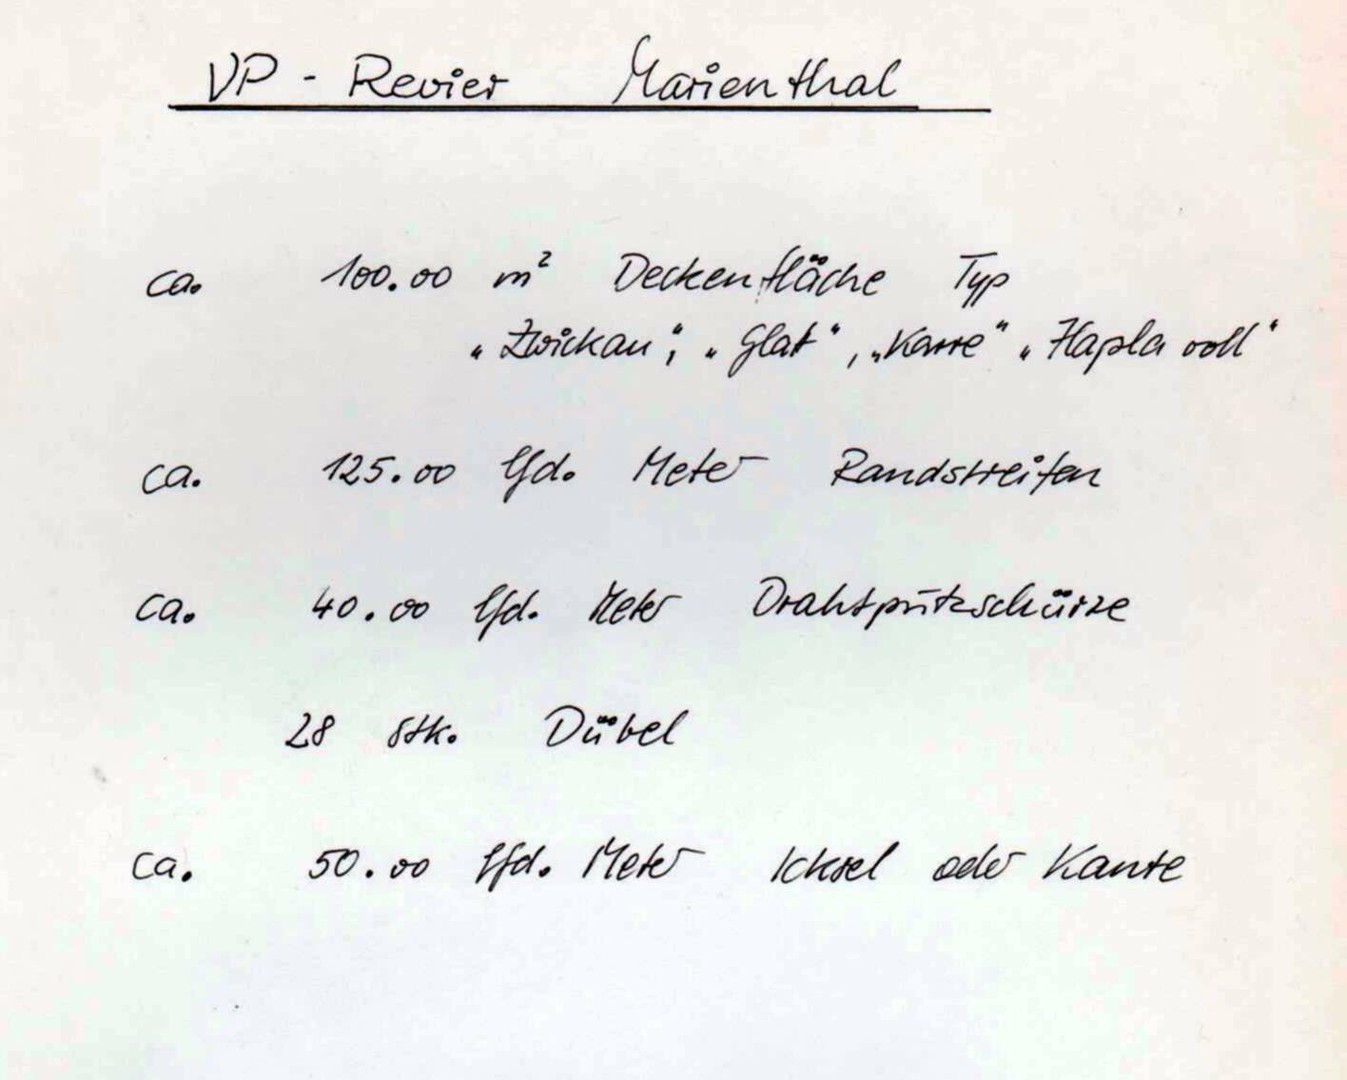 VP - Revier Marienthal
ca. 100.00 m² Deckenfläche Typ
„Zwickau“, „Glat“, „Karre“ „Hapla voll“
ca. 125.00 lfd. Meter Randstreifen
ca. 40.00 lfd. Meter Drahtputzschürze
28 Stk. Dübel
ca. 50.00 lfd. Meter Ichsel oder Kante